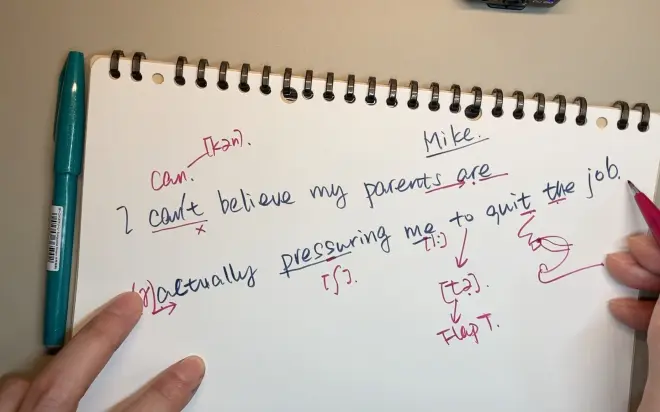 Mike.
[kən].
can.
I can't believe my parents are
x
actually pressuring me to quit the job.
[ʃ].
[i:]
[tə].
Flap T.